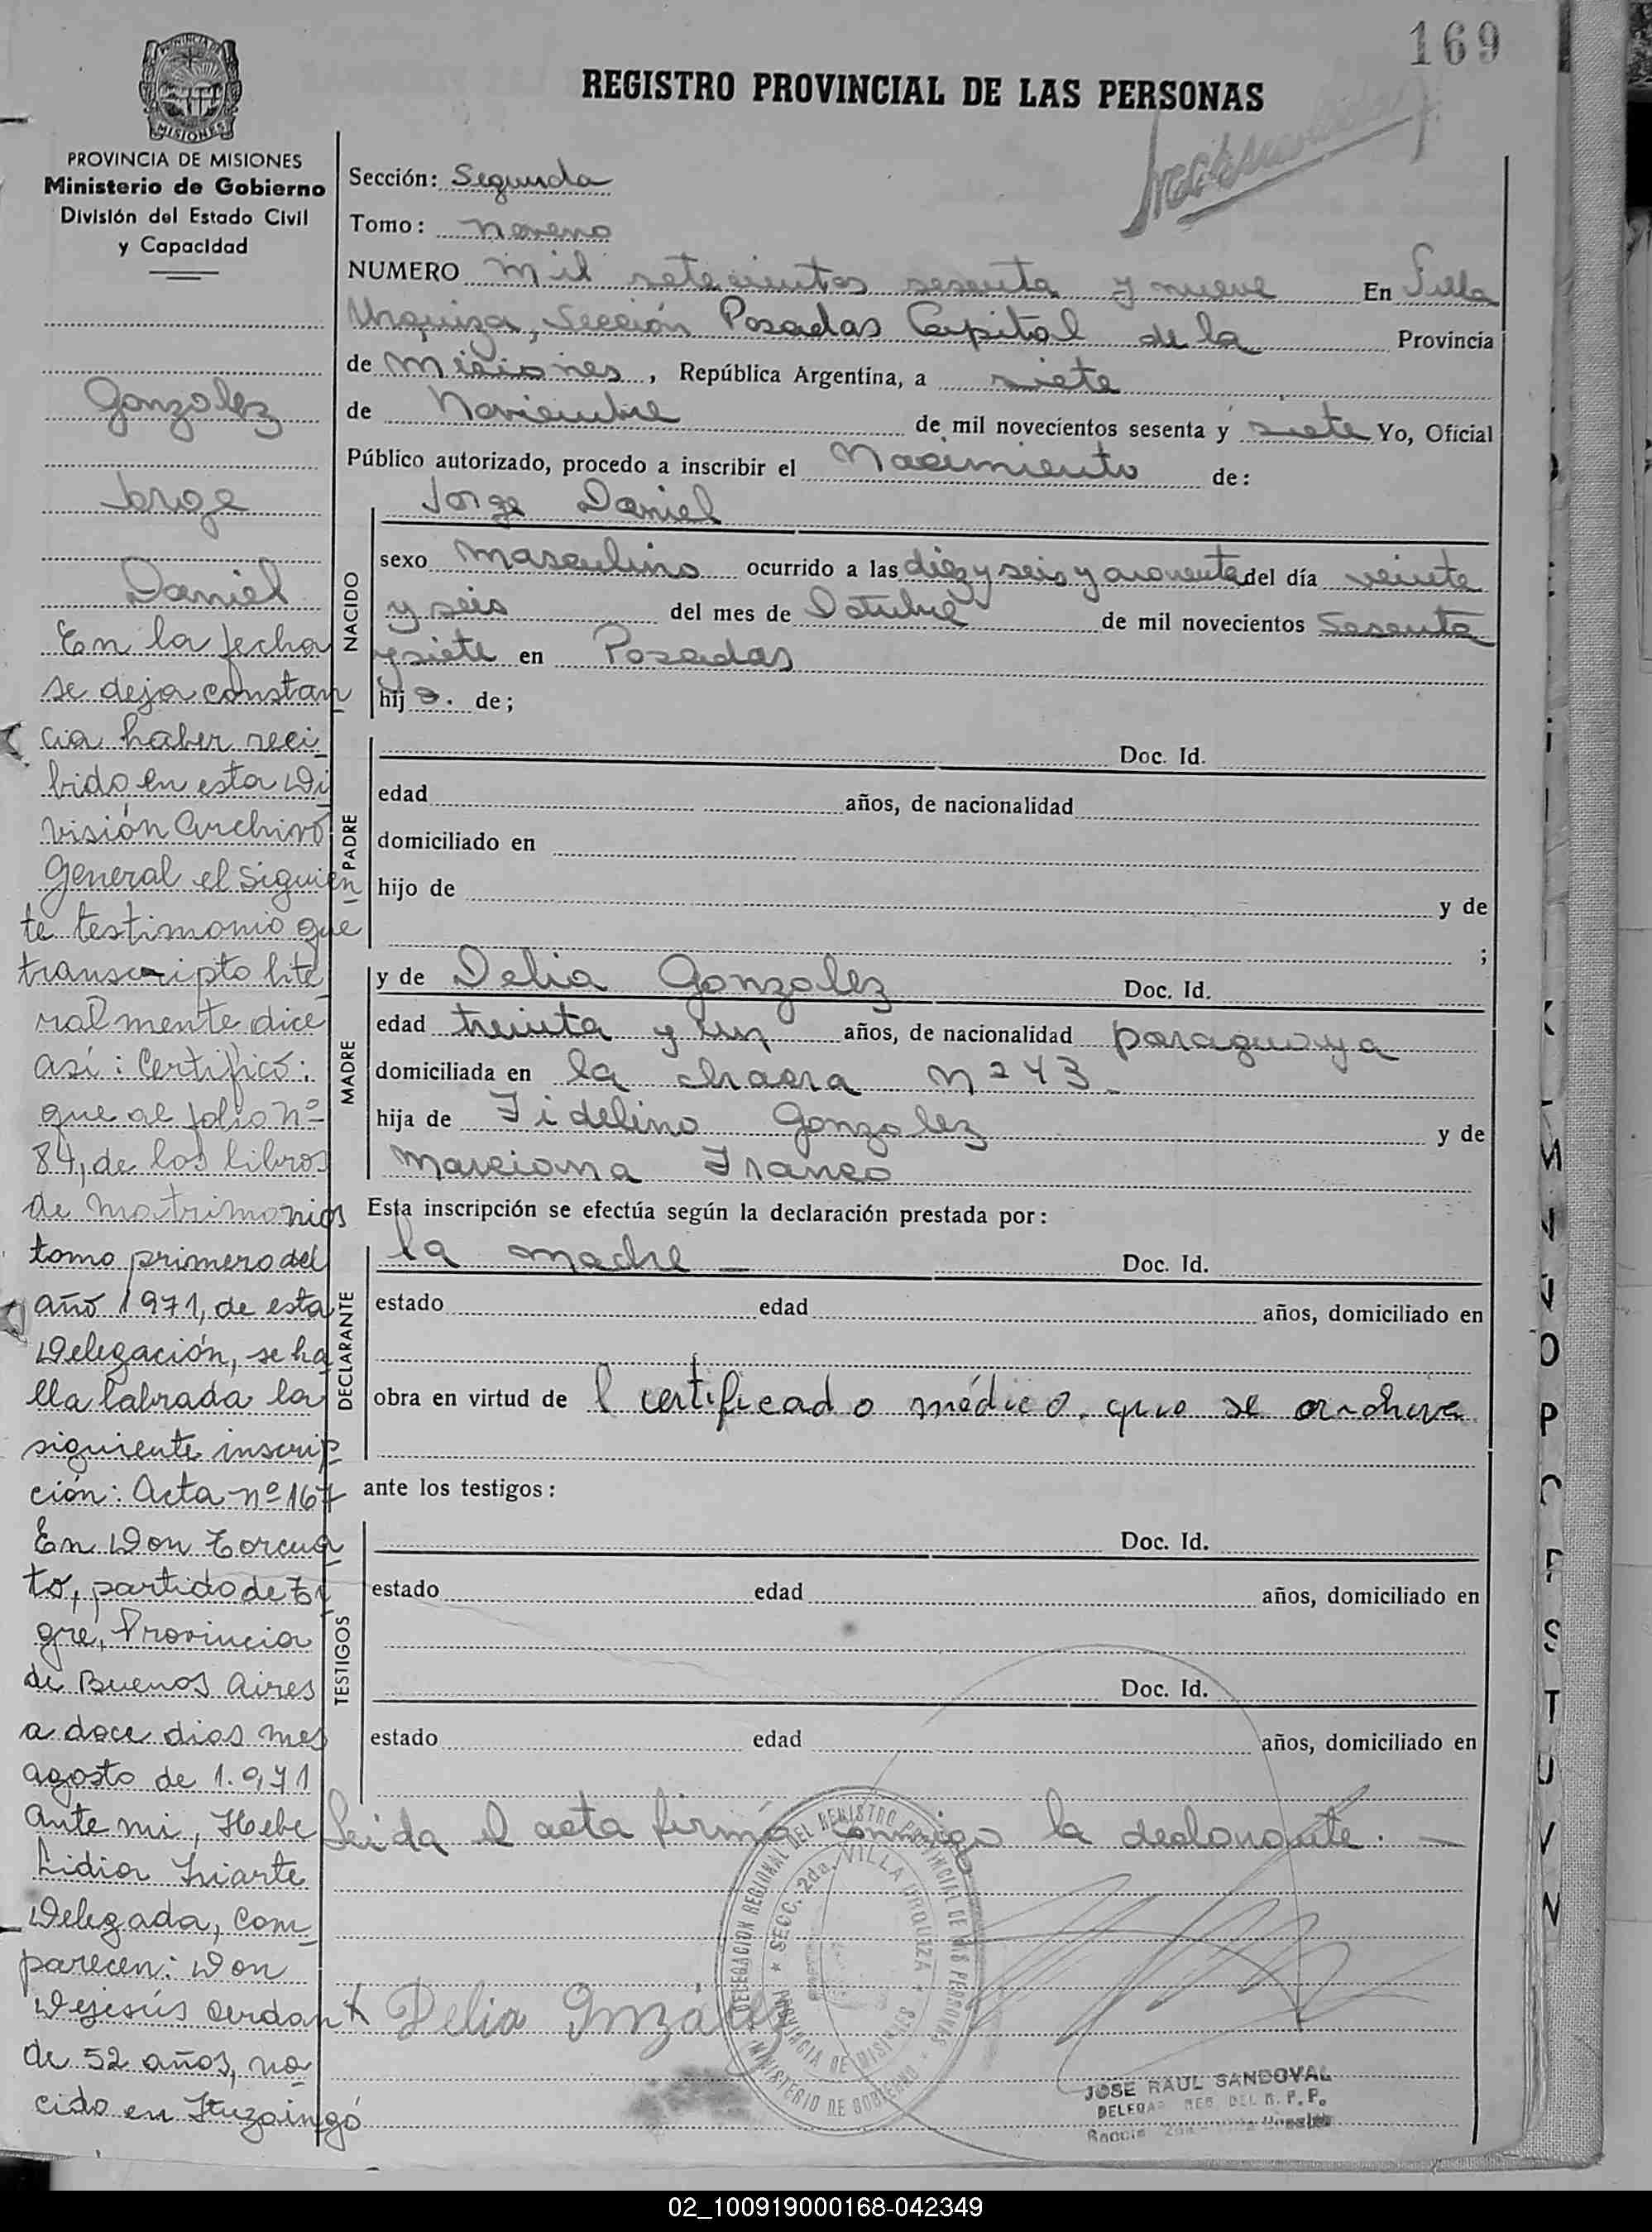 169
REGISTRO PROVINCIAL DE LAS PERSONAS
PROVINCIA DE MISIONES
Ministerio de Gobierno
División del Estado Civil
y Capacidad
Gonzalez
Jorge
Daniel
En la fecha
se deja constan
cia haber reci
bido en esta Di
visión Archivo
General el siguien
te testimonio que
transcripto lite
ralmente dice
así: Certifico:
que al folio nº
84, de los libros
de matrimonios
tomo primero del
año 1971, de esta
Delegación, se ha
lla labrada la
siguiente inscrip
ción: Acta nº 167
En Don Torcua
to, partido de Ti
gre, Provincia
de Buenos Aires
a doce dias mes
agosto de 1.971
Ante mi, Hebe
Lidia Iriarte
Delegada, com
parecen: Don
Dejesús Cerdan
de 52 años, na
cido en Ituzaingó
Sección: Segunda
Tomo: noveno
NUMERO mil setecientos sesenta y nueve En Villa
Urquiza, Sección Posadas Capital de la Provincia
de Misiones, República Argentina, a siete
de Noviembre de mil novecientos sesenta y siete Yo, Oficial
Público autorizado, procedo a inscribir el Nacimiento de:
NACIDO
Jorge Daniel
sexo masculino ocurrido a las diez y seis y cuarenta del día veinte
y seis del mes de Octubre de mil novecientos Sesenta
y siete en Posadas
hij o. de;
PADRE
Doc. Id.
edad años, de nacionalidad
domiciliado en
hijo de y de
;
MADRE
y de Delia Gonzalez Doc. Id.
edad treinta y un años, de nacionalidad paraguaya
domiciliada en la chacra Nº 43
hija de Fidelino Gonzalez y de
Marciana Franco
Esta inscripción se efectúa según la declaración prestada por:
DECLARANTE
la madre Doc. Id.
estado edad años, domiciliado en
obra en virtud de l certificado médico. que se archiva
ante los testigos:
TESTIGOS
Doc. Id.
estado edad años, domiciliado en
Doc. Id.
estado edad años, domiciliado en
Leida el acta firma conmigo la declarante.
DELEGACION REGIONAL DEL REGISTRO PROVINCIAL DE LAS PERSONAS
MINISTERIO DE GOBIERNO
SECC. 2da. VILLA URQUIZA
PROVINCIA DE MISIONES
Delia Gonzáles
JOSE RAUL SANDOVAL
DELEGADO REG. DEL R. P. P.
K
M
N
V
O
P
S
T
U
V
N
02_100919000168-042349